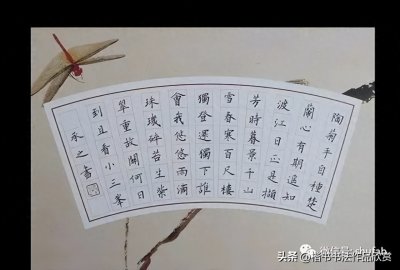 陶菊手自種楚
蘭心有期遥知
渡江日正是擷
芳時暮景千山
雪春寒百尺樓
獨登還獨下誰
會我悠悠雨滴
珠璣碎苔生紫
翠重故關何日
到且看小三峯
承之書
微信号:
头条 @楷书书法作品欣赏